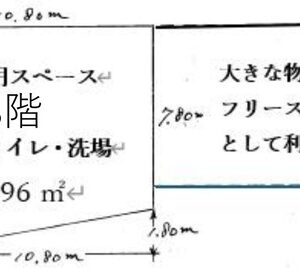 0.80m
用スペース↵
階
イレ・洗場↵
96 ㎡↵
大きな物
フリース
として利
7.80m
1.80m
10.80m